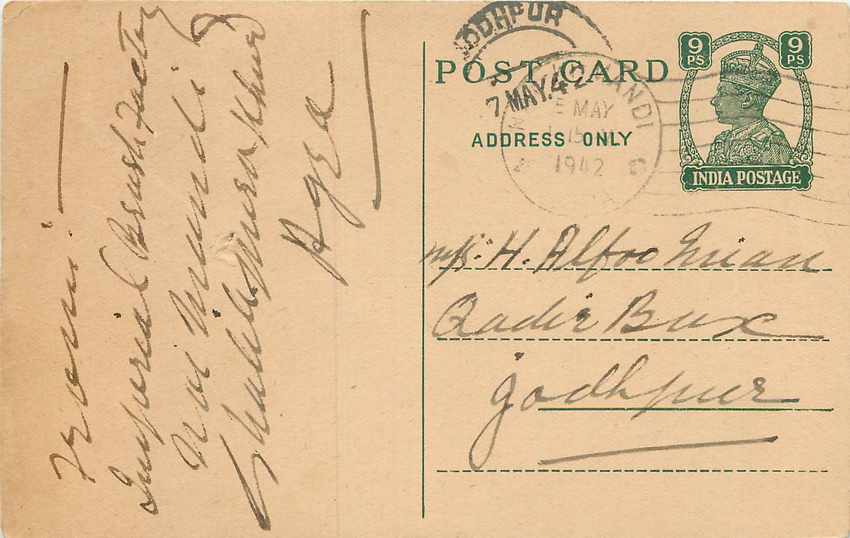 From:
Imperial Brush Factory
Nai Mundi
Shahganj
Agra
JODHPUR
7 MAY.42
MANDI
5 MAY
1942
POST CARD
ADDRESS ONLY
9 PS
9 PS
INDIA POSTAGE
M/s. H. Alfoo Mian
Qadir Bux
Jodhpur